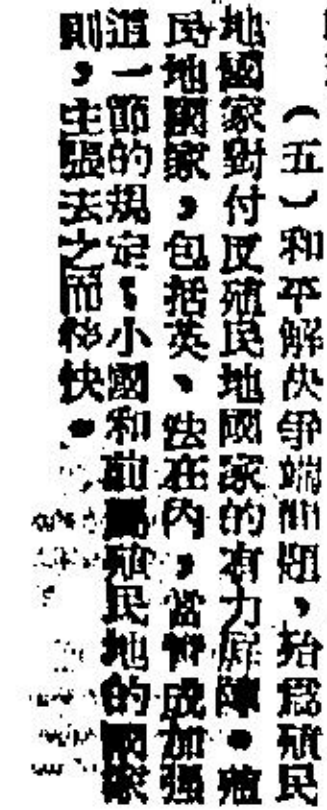 （五）和平解決爭端問題，殆爲殖民
地國家對付反殖民地國家的有力屛障。殖
民地國家，包括英、法在內，當曾成加强
這一節的規定，小國和前屬殖民地的國家
則，主張去之而後快。